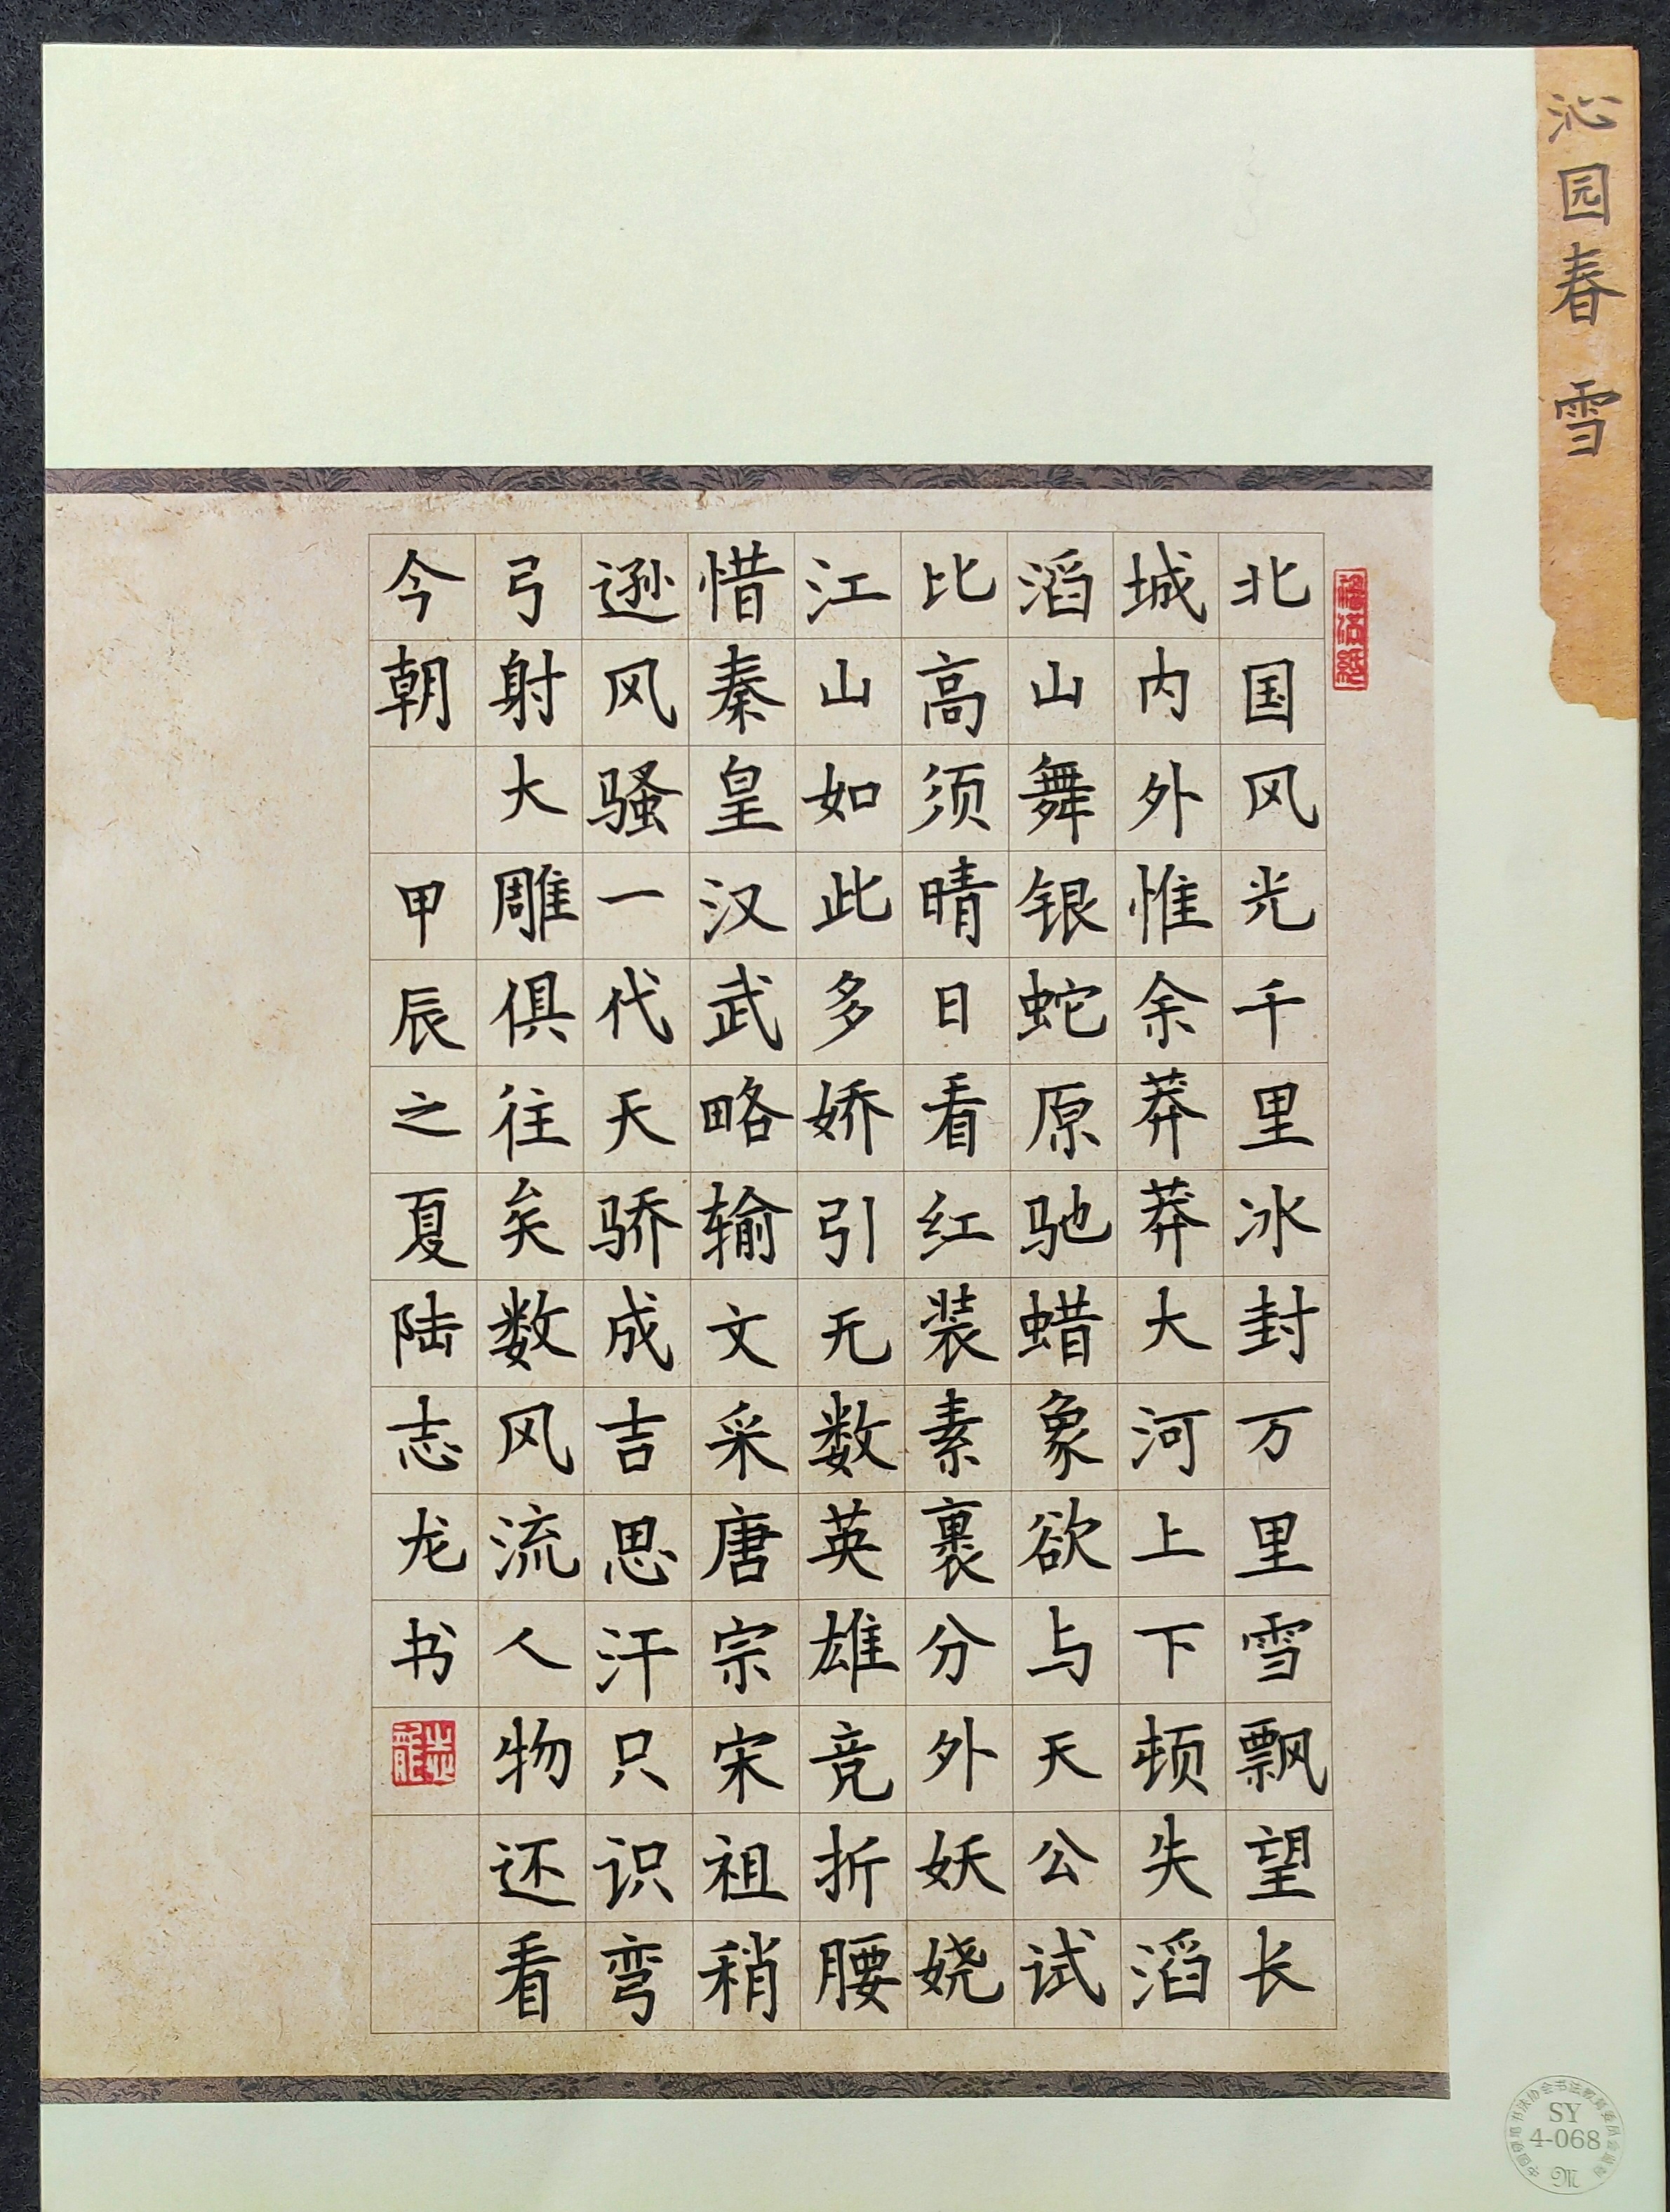 沁园春 雪
北国风光千里冰封万里雪飘望长
城内外惟余莽莽大河上下顿失滔
滔山舞银蛇原驰蜡象欲与天公试
比高须晴日看红装素裹分外妖娆
江山如此多娇引无数英雄竞折腰
惜秦皇汉武略输文采唐宗宋祖稍
逊风骚一代天骄成吉思汗只识弯
弓射大雕俱往矣数风流人物还看
今朝 甲辰之夏陆志龙书
志龍
SY
4-068